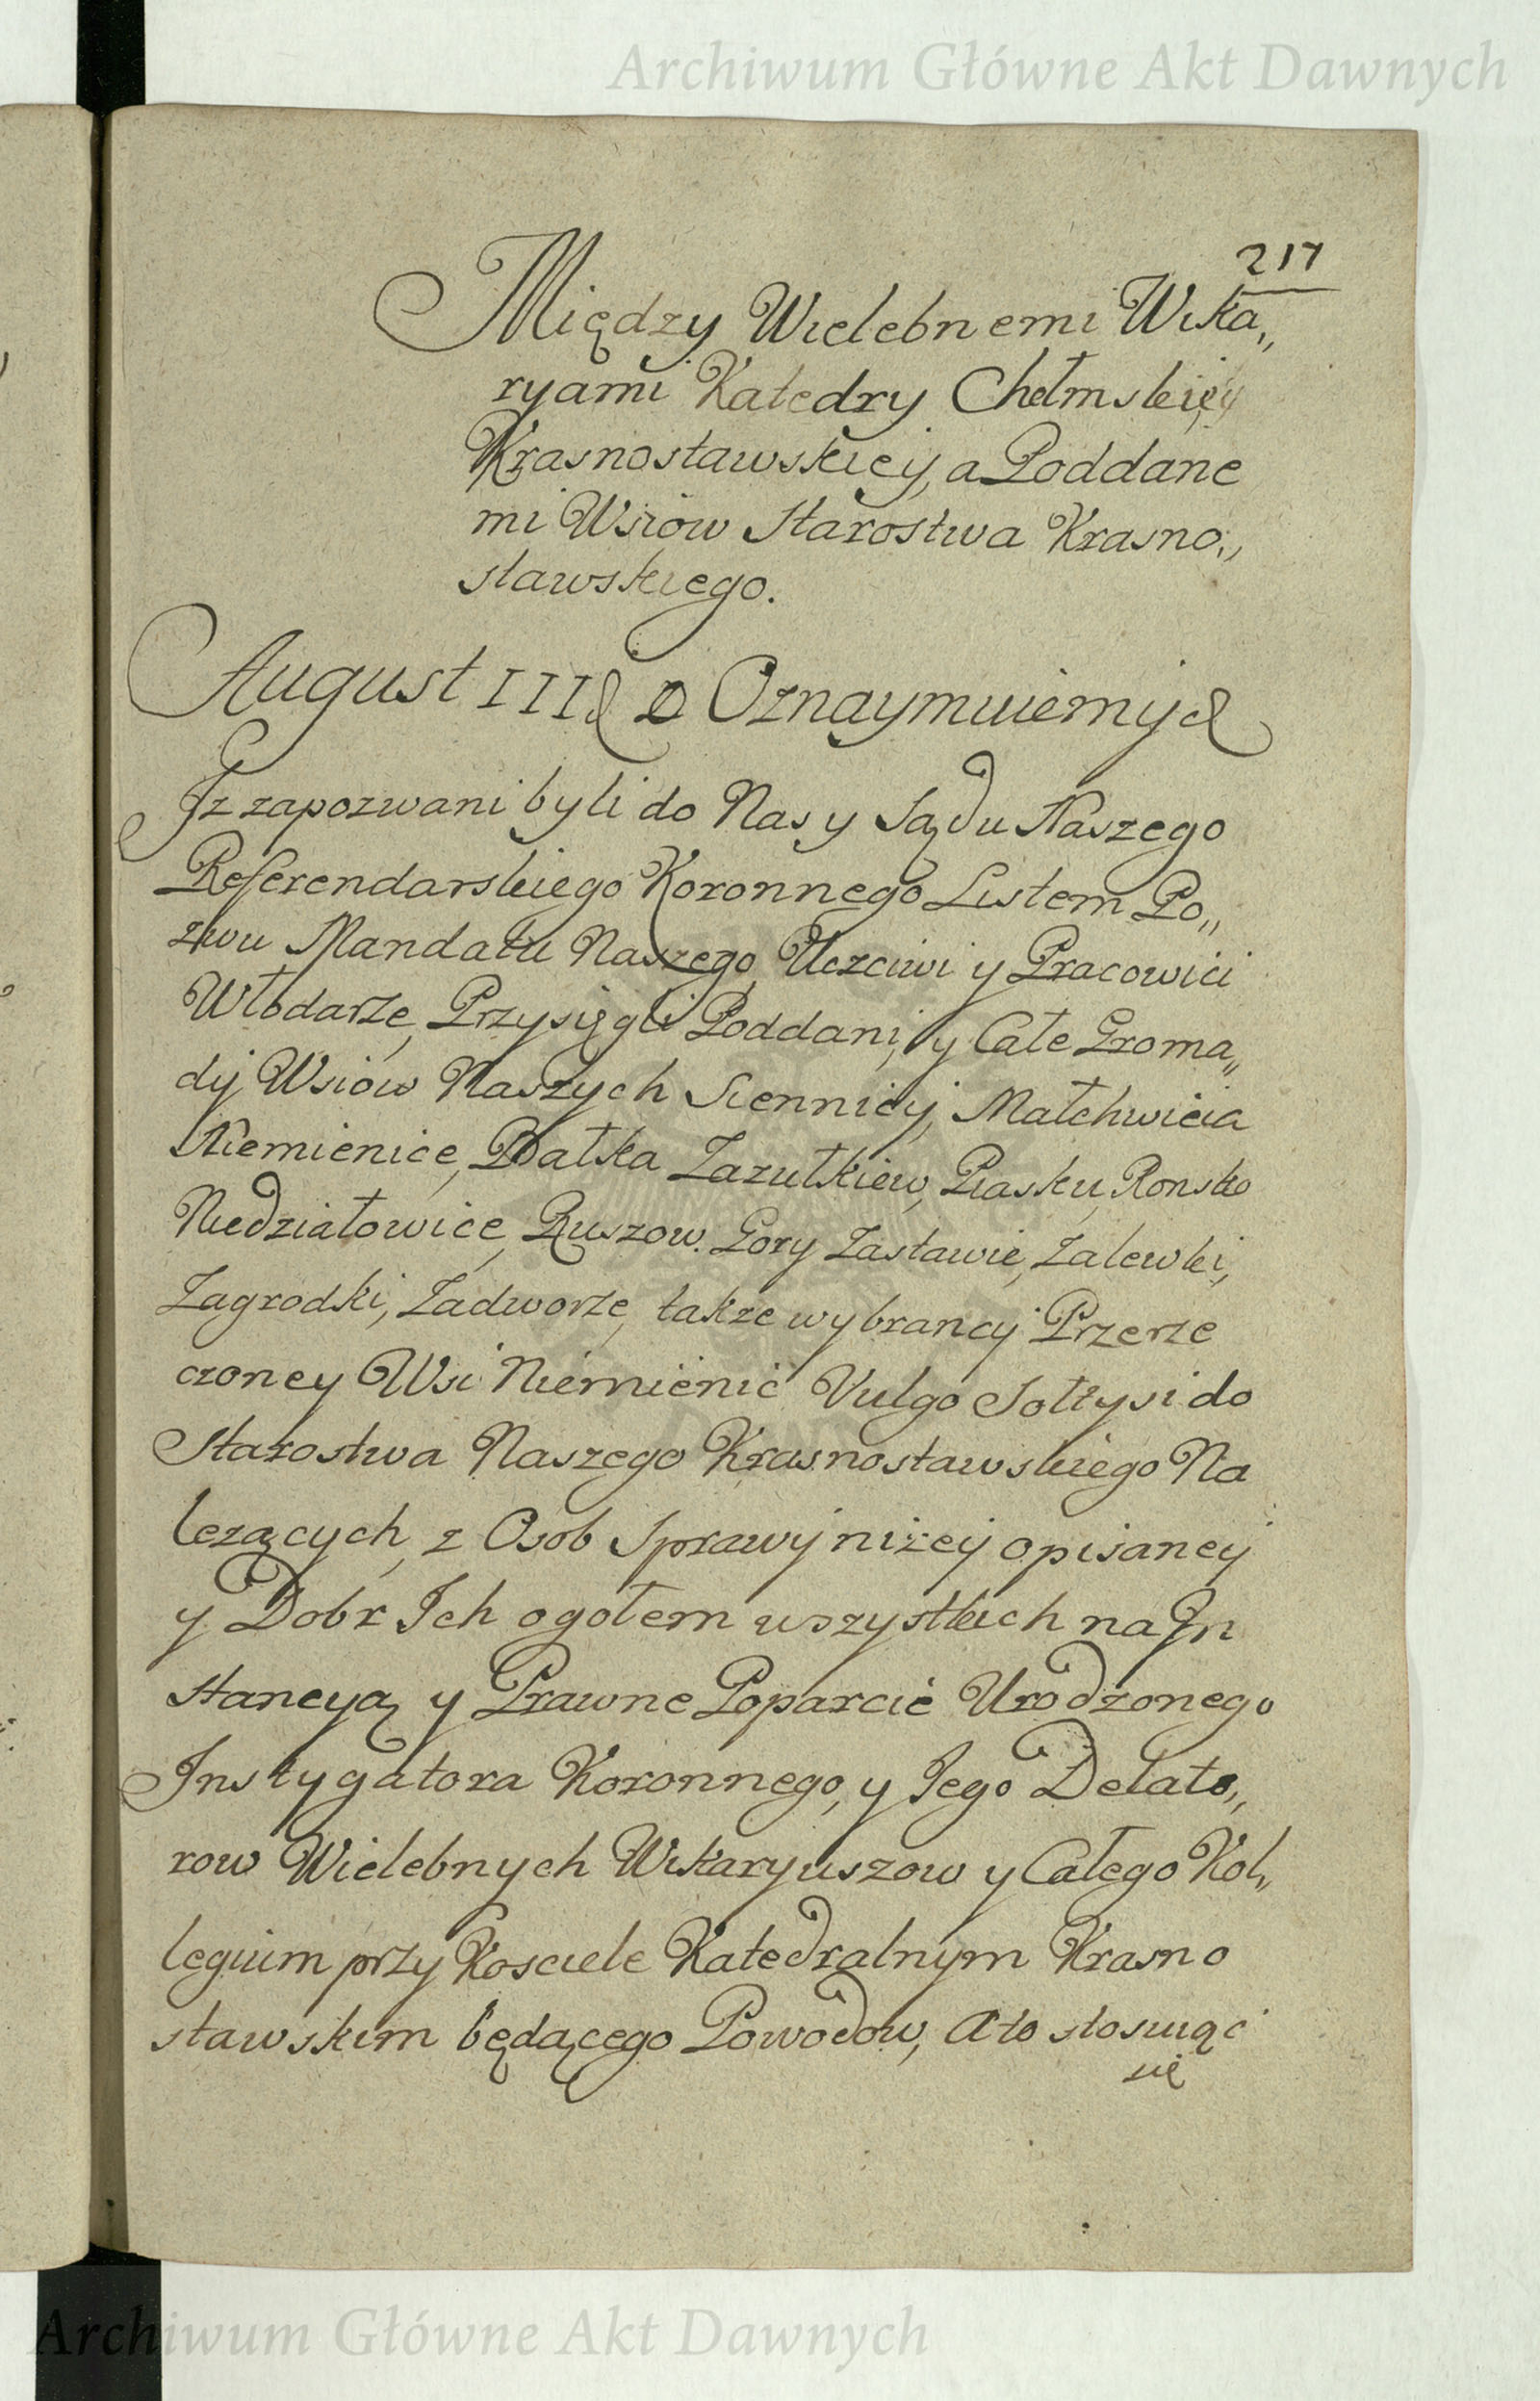 Archiwum Główne Akt Dawnych
217
Między Wielebnemi Wika„
ryami Katedry Chełmskiey
Krasnostawskiey, a Poddane
mi Wsiow Starostwa Krasno„
stawskiego.
August III& Oznaymuiemy &
Iz zapozwani byli do Nas y Sądu Naszego
Referendarskiego Koronnego Listem Po„
zwu Mandatu Naszego Uczciwi y Pracowici
Włodarze, Przysięgli Poddani, y Całe Groma„
dy Wsiow Naszych Siennicy, Małchwieia
Niemienice, Białka Zazułkiew, Piasku, Ronsko
Niedziałowice, Ruszow. Gory Zastawie, Zalewki,
Zagrodki, Zadworze, takze wybrancy Przerze
czoney Wsi Niemienic Vulgo Sołtysi do
Starostwa Naszego Krasnostawskiego Na
lezących, z Osob Sprawy nizey opisaney
y Dobr Ich ogołem wszystkich na In
stancyą y Prawne Poparcie Urodzonego
Instygatora Koronnego, y Jego Delato„
row Wielebnych Wikaryuszow y Całego Kol„
legium przy Kosciele Katedralnym Krasno
stawskim będącego Powodow, A to stosuiąc
się
Archiwum Główne Akt Dawnych